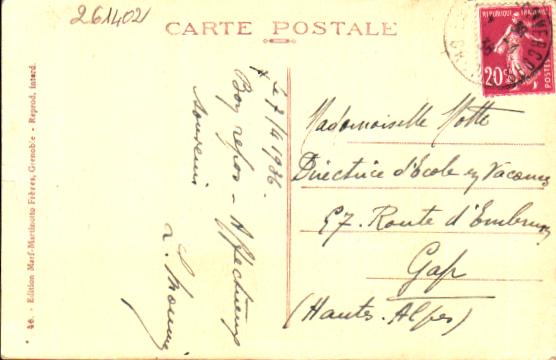 261402
CARTE POSTALE
REPUBLIQUE FRANÇAISE
20c
POSTES
le 7/9 1936
Bon repos - Affectueux
souvenir
Mademoiselle Motte
Directrice d'Ecole en Vacances
57. Route d'Embrun
Gap
(Hautes-Alpes)
46. - Edition Marf-Martinotto Frères, Grenoble - Reprod. interd.